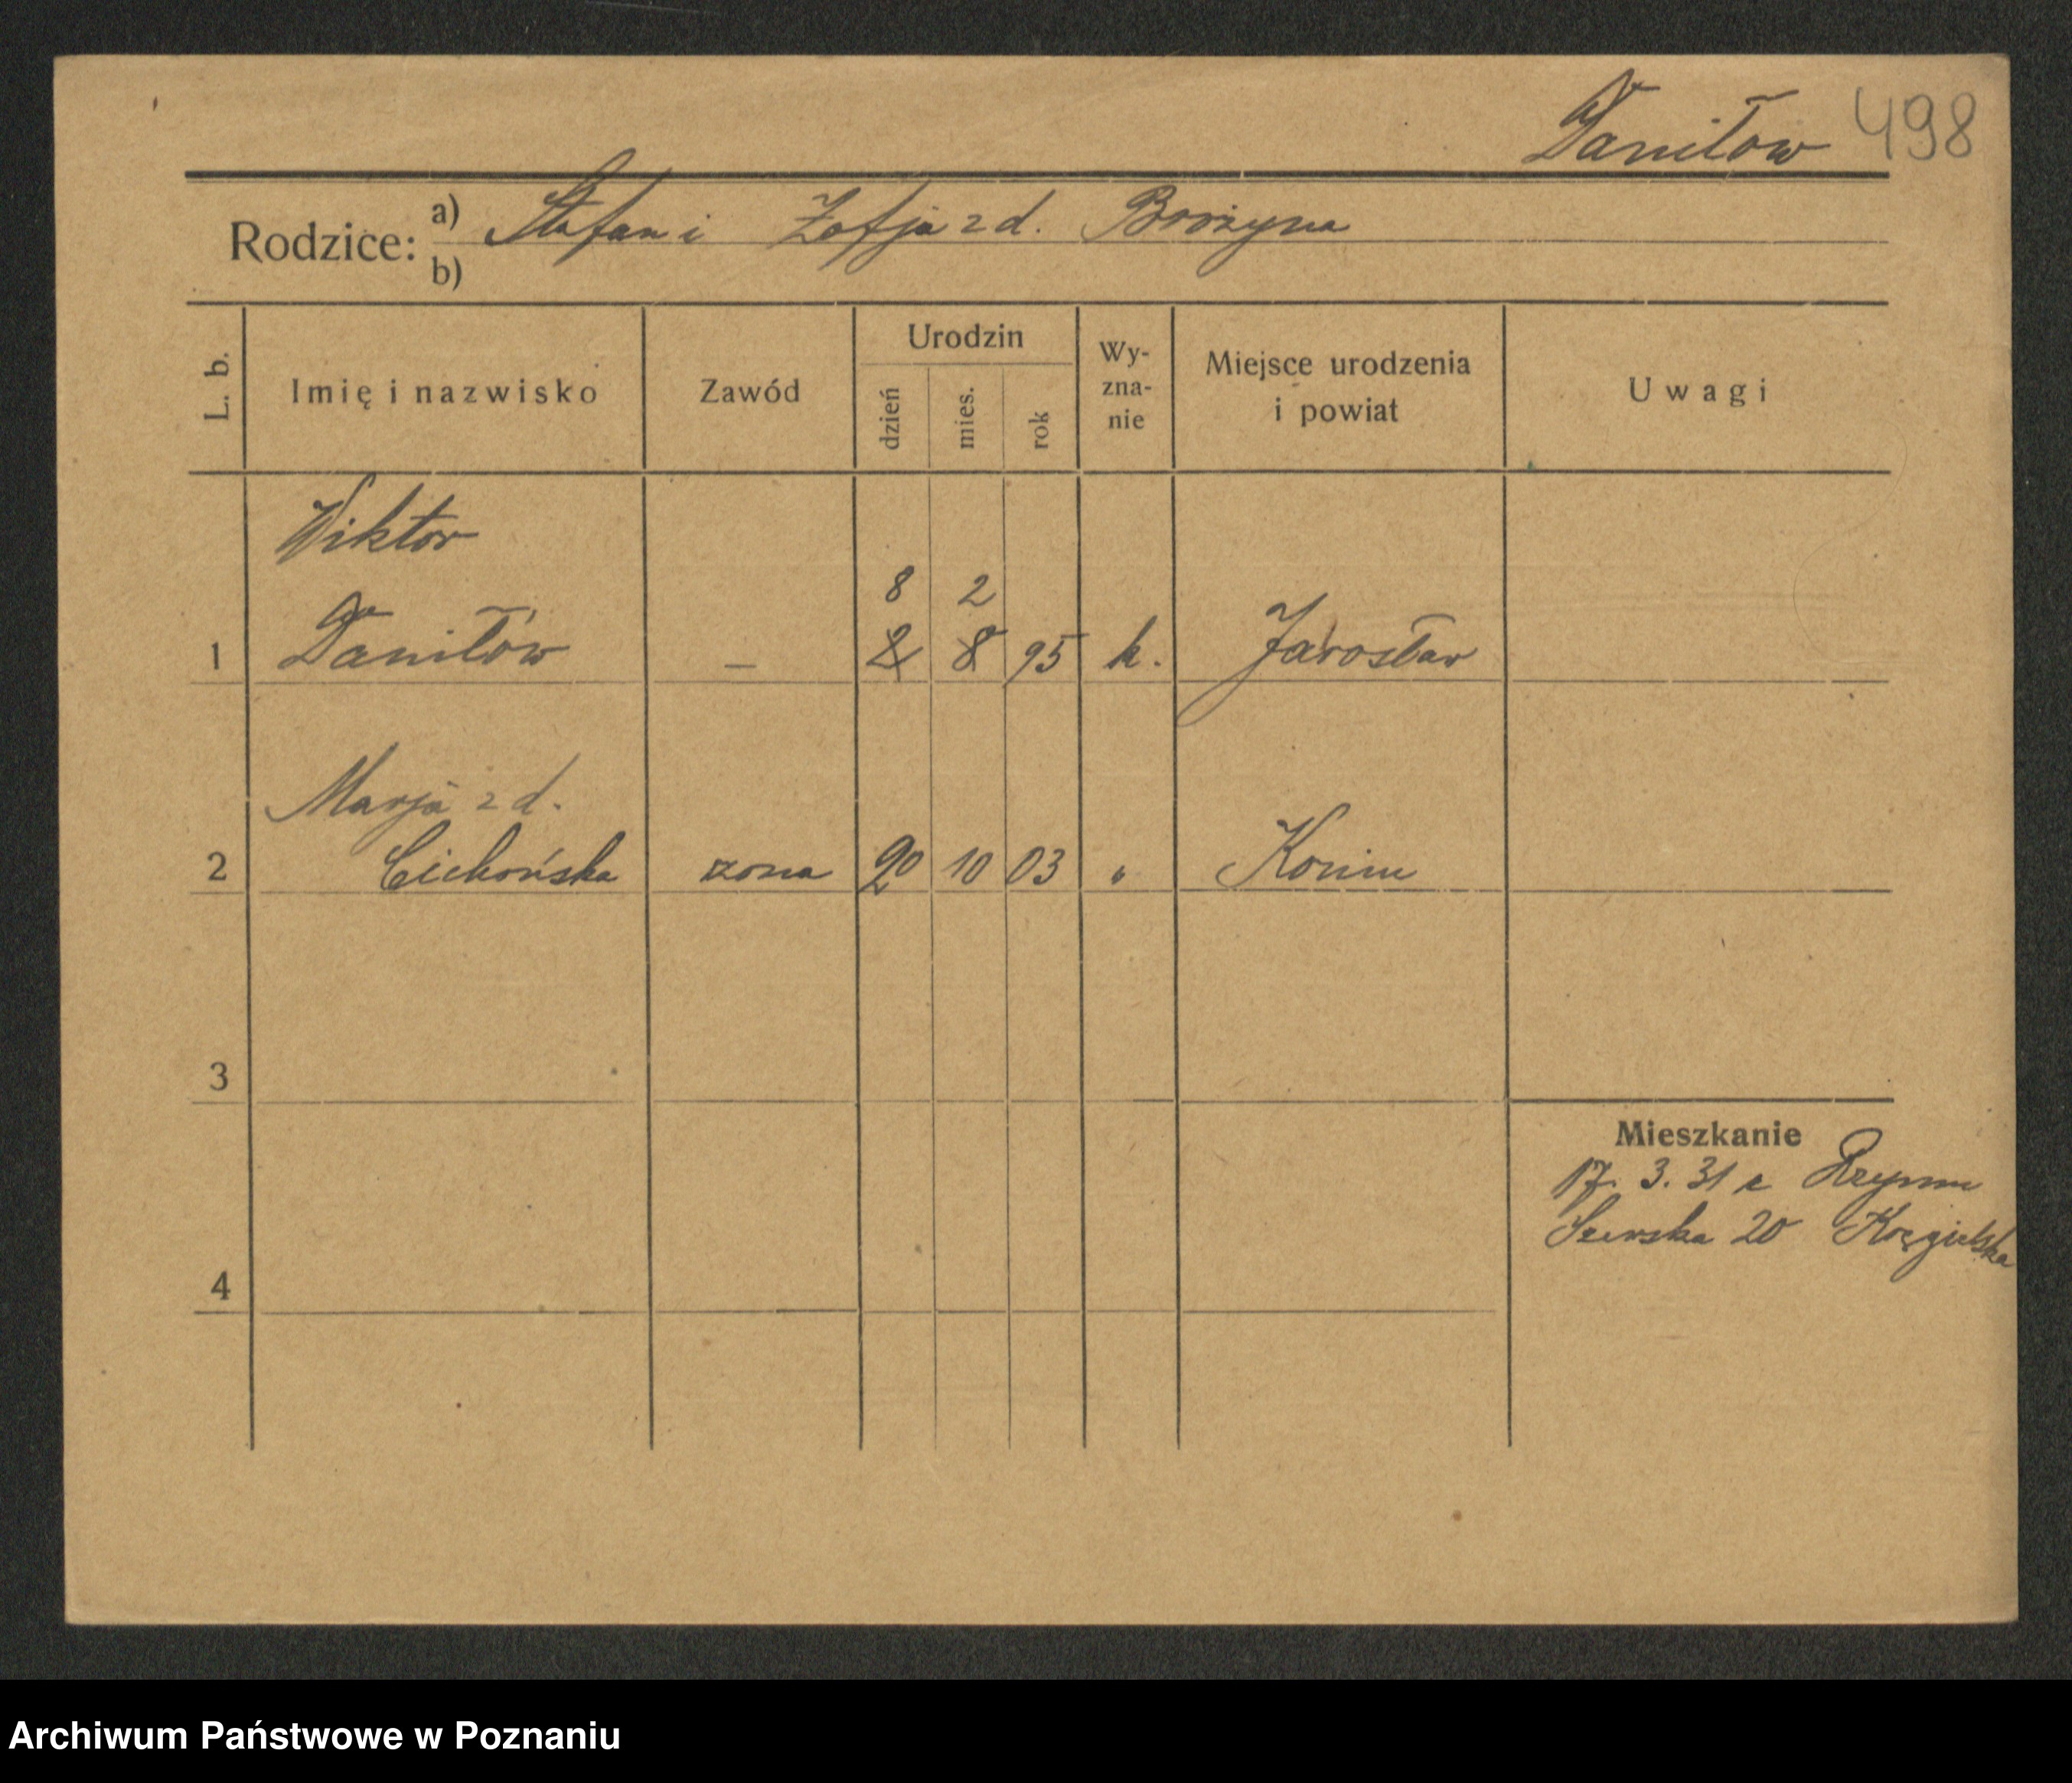 Daniłow 498
Rodzice: a) Stefan i Zofja z d. Borożyna
b)
L. b. Imię i nazwisko Zawód Urodzin dzień mies. rok Wy-zna-nie Miejsce urodzenia i powiat Uwagi
Wiktor
8 2
1 Daniłów — 2 8 95 k. Jarosław
Marja z d.
2 Cichońska żona 20 10 03 " Konin
3
Mieszkanie
17. 3. 31 z
Szewska 20
4
Archiwum Państwowe w Poznaniu